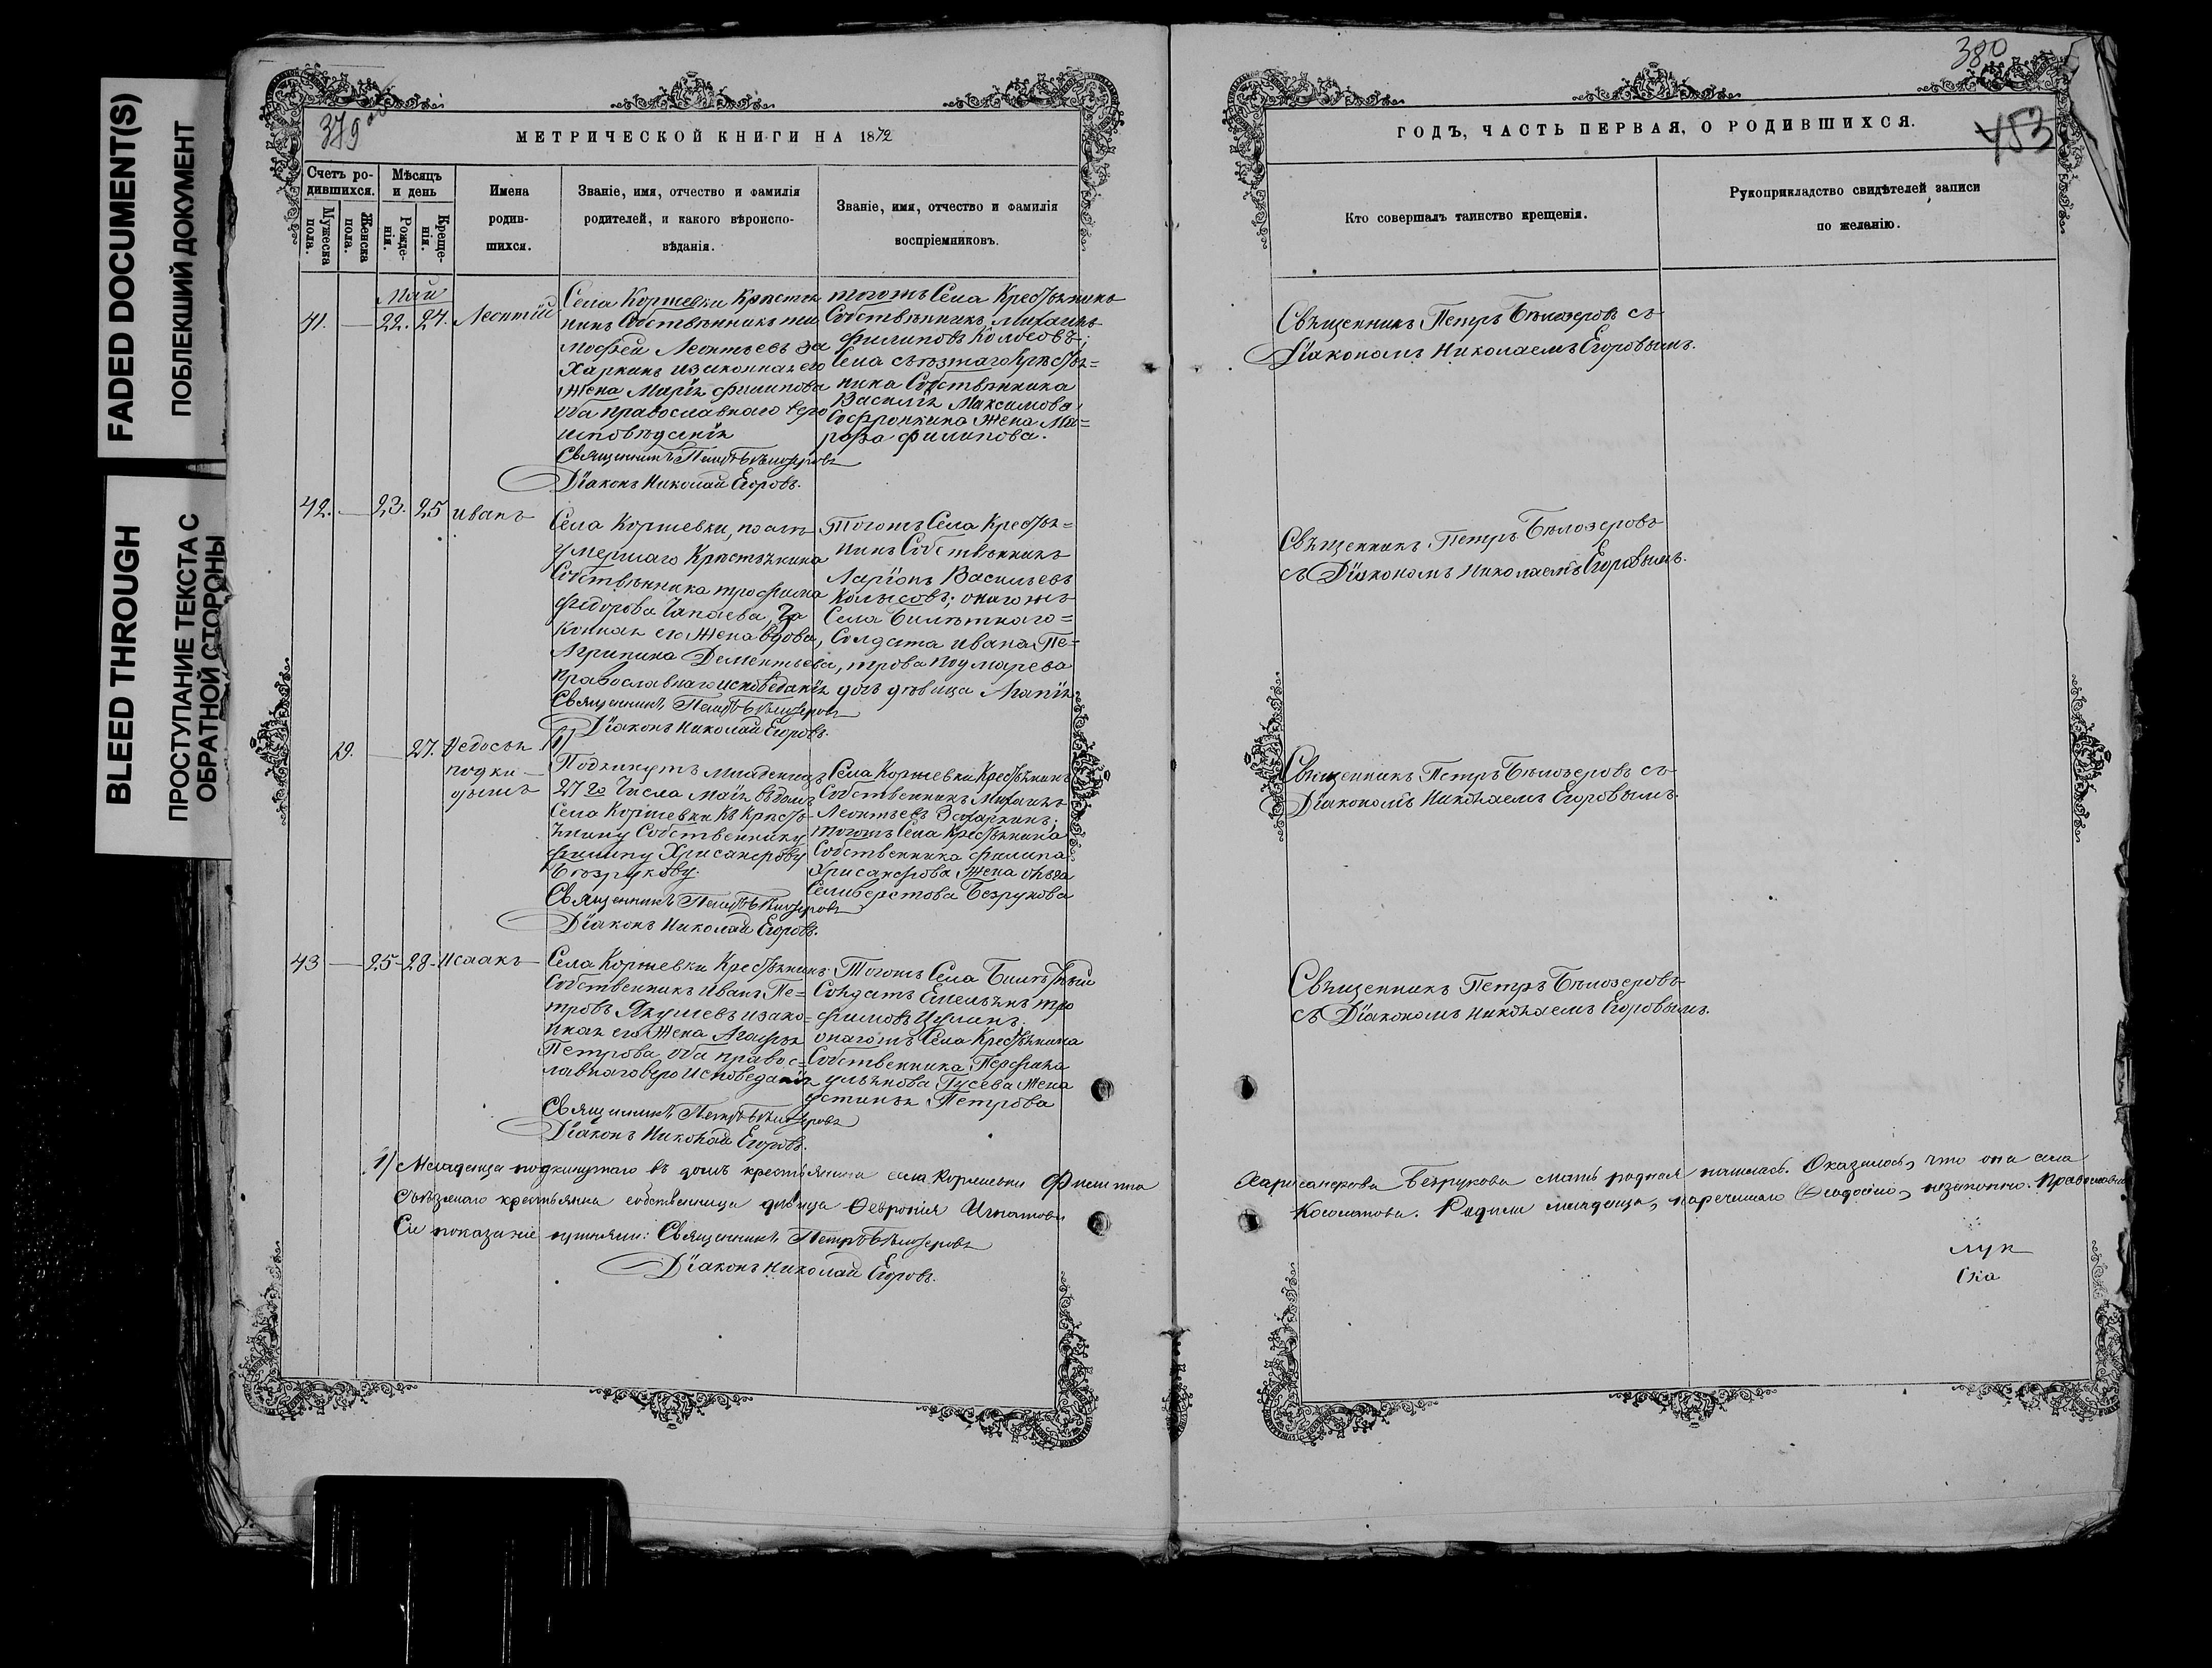 FADED DOCUMENT(S)
ПОБЛЕКШИЙ ДОКУМЕНТ
BLEED THROUGH
ПРОСТУПАНИЕ ТЕКСТА С
ОБРАТНОЙ СТОРОНЫ
379 об
МЕТРИЧЕСКОЙ КНИГИ НА 1872
Счетъ ро-
дившихся.
Мужеска
пола.
Женска
пола.
Мѣсяцъ
и день
Рожде-
нія.
Креще-
нія.
Имена
родив-
шихся.
Званіе, имя, отчество и фамилія
родителей, и какого вѣроиспо-
вѣданія.
Званіе, имя, отчество и фамилія
воспріемниковъ.
Май
41. — 22. 24. Леонтій
Села Коршевки Крестья
нинъ Собственникъ тим
мофей Леонтьевъ За
Харкинъ изаконная его
Жена Марія филипова
оба православнаго веро
исповѣданія
Священникъ Петръ Бѣлозеровъ
Діаконъ Николай Егоровъ.
тогожъ Села Крестьянинъ
Собственникъ Михаилъ
филиповъ Колосовъ;
Села съезжаго Крестья=
нина Собственника
Василія Максимова
Софронкина Жена Ма=
рфа филипова.
42. — 23. 25 иванъ
Села Коршевки, посль
умершаго Крестьянина
Собственника трофима
федорова Чапаева, За
конная его Жена вдова,
Агрипина Дементьева,
православнаго исповеданія
Священникъ Петръ Бѣлозеровъ
Діаконъ Николай Егоровъ.
Тогожъ Села Крестья=
нинъ Собственникъ
Ларіонъ Васильевъ
Колысовъ; онагожъ
Села Билѣтнаго=
Солдата ивана Пе=
трова
дочь дѣвица Агапія
19. — 27. Ѳедосья
подки-
дышъ
1)
Подкинутъ младенецъ
27 го Числа Маія въ домъ
Села Коршевки къ Кресть-
янину Собственнику
филипу Хрисанфову
Безрукову.
Священникъ Петръ Бѣлозеровъ
Діаконъ Николай Егоровъ.
Села Коршевки Крестьянинъ
Собственникъ Михаилъ
Леонтьевъ Захаркинъ;
тогожъ Села Крестьянина
Собственника филипа
Хрисанфова Жена
Селиверстова Безрукова
43 — 25- 28- Исаакъ
Села Коршевки Крестьянинъ
Собственникъ Иванъ Пе=
тровъ Якушевъ изако=
нная его Жена Агафья
Петрова, оба правос=
лавнаго веро Исповеданія
Священникъ Петръ Бѣлозеровъ
Діаконъ Николай Егоровъ.
Тогожъ Села Билѣтный
Солдатъ Емельянъ тро
фимовъ
онагожъ Села Крестьянина
Собственника Перфила
ульянова Гусева Жена
устинья Петрова
1) Младенца подкинутаго въ домъ крестьянина села Коршевки Филиппа
крестьянина собственница дѣвица Ѳевронія Игнатова
Сіе показаніе приняли: Священникъ Петръ Бѣлозеровъ
Діаконъ Николай Егоровъ.
380
453
ГОДЪ, ЧАСТЬ ПЕРВАЯ, О РОДИВШИХСЯ.
Кто совершалъ таинство крещенія.
Рукоприкладство свидѣтелей записи
по желанію.
Священникъ Петръ Бѣлозеровъ съ
Діакономъ Николаемъ Егоровымъ.
Священникъ Петръ Бѣлозеровъ
съ Діакономъ Николаемъ Егоровымъ.
Священникъ Петръ Бѣлозеровъ съ
Діакономъ Николаемъ Егоровымъ.
Священникъ Петръ Бѣлозеровъ
съ Діакономъ Николаемъ Егоровымъ.
Харисанфова Безрукова мать родная нашлась. Оказалось, что она села
Родила младенца, нареченнаго Ѳеодосіею, незаконно.
лук
ска